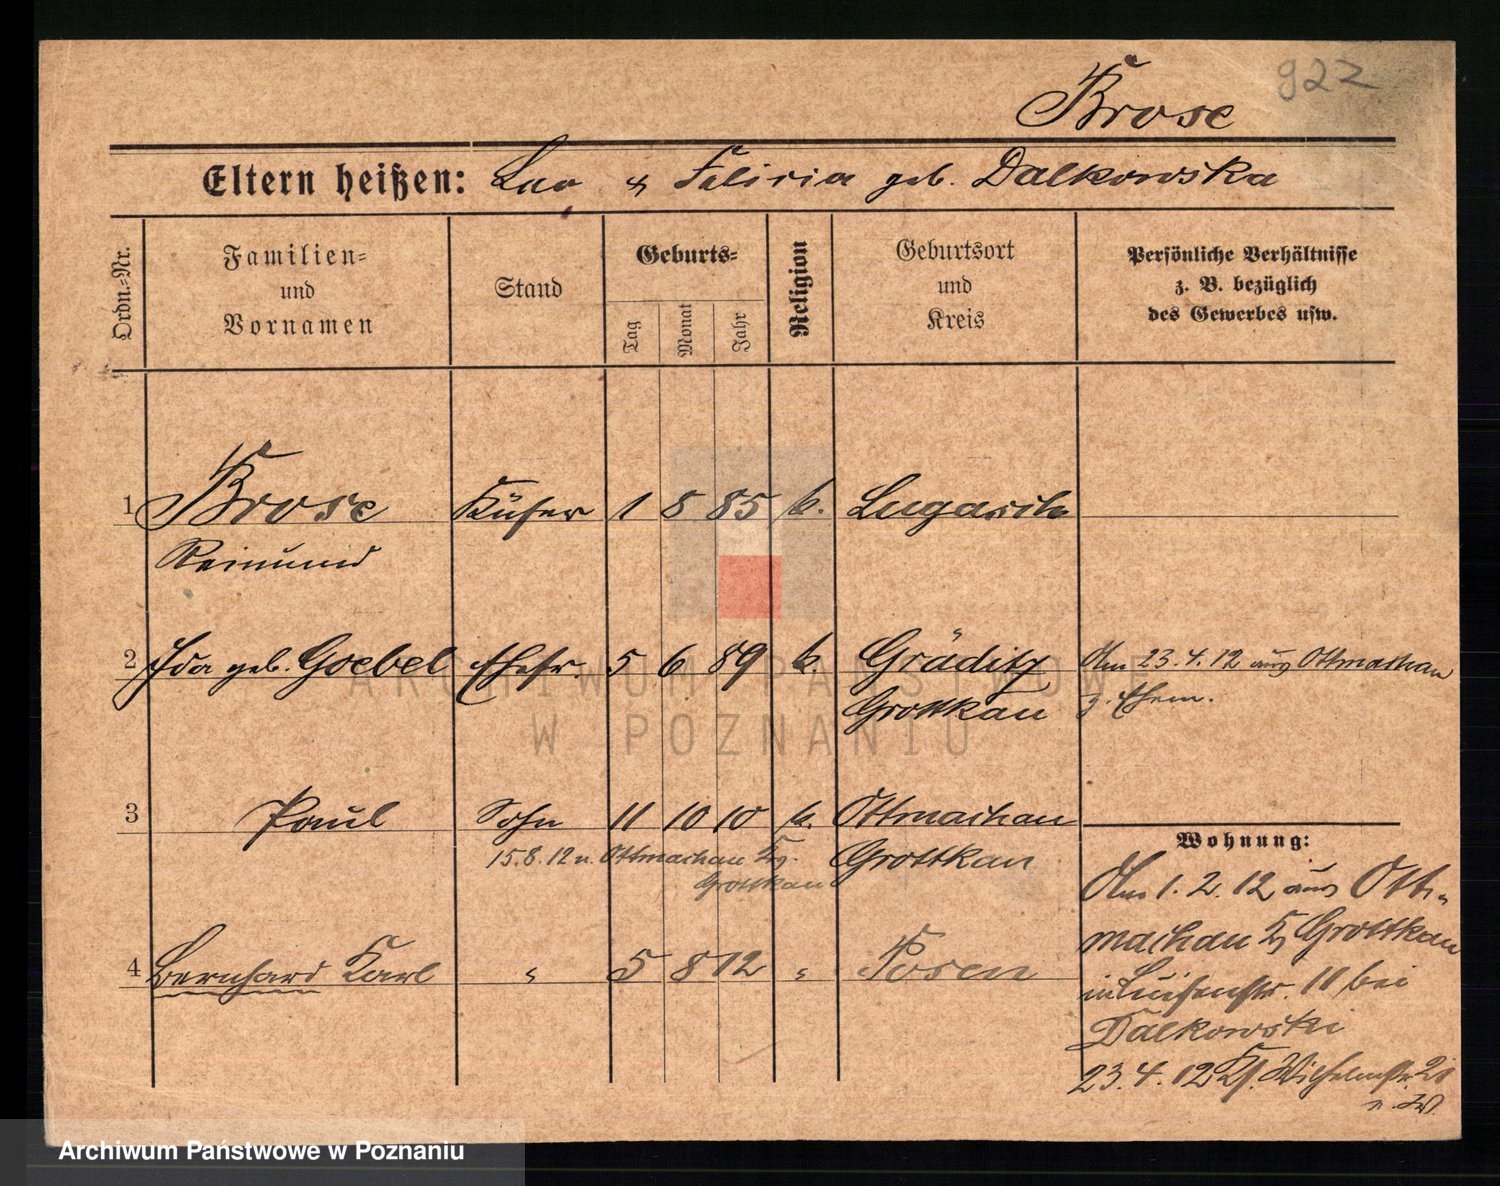 922
Brose
Eltern heißen: Leo u Felicia geb. Dalkowska
Ordn.-Nr.
Familien-
und
Vornamen
Stand
Geburts-
Tag
Monat
Jahr
Religion
Geburtsort
und
Kreis
Persönliche Verhältnisse
z. B. bezüglich
des Gewerbes usw.
1 Brose Küfer 1 8 85 k.
Reimund
2 Ida geb. Goebel Ehefr. 5 6 89 k. Gräditz Am 23.4.12 aus Ottmachau
Grottkau z. Ehem.
3 Paul Sohn 11 10 10 k. Ottmachau
15.8.12 n. Ottmachau Kr. Grottkau
Grottkau
4 Bernhard Karl " 5 8 12 " Posen
Wohnung:
Am 1.2.12 aus Ott-
machau Kr Grottkau
in Luisenstr. 11 bei
Dalkowski
23.4.12 Wilhelmstr
ARCHIWUM PAŃSTWOWE
W POZNANIU
Archiwum Państwowe w Poznaniu